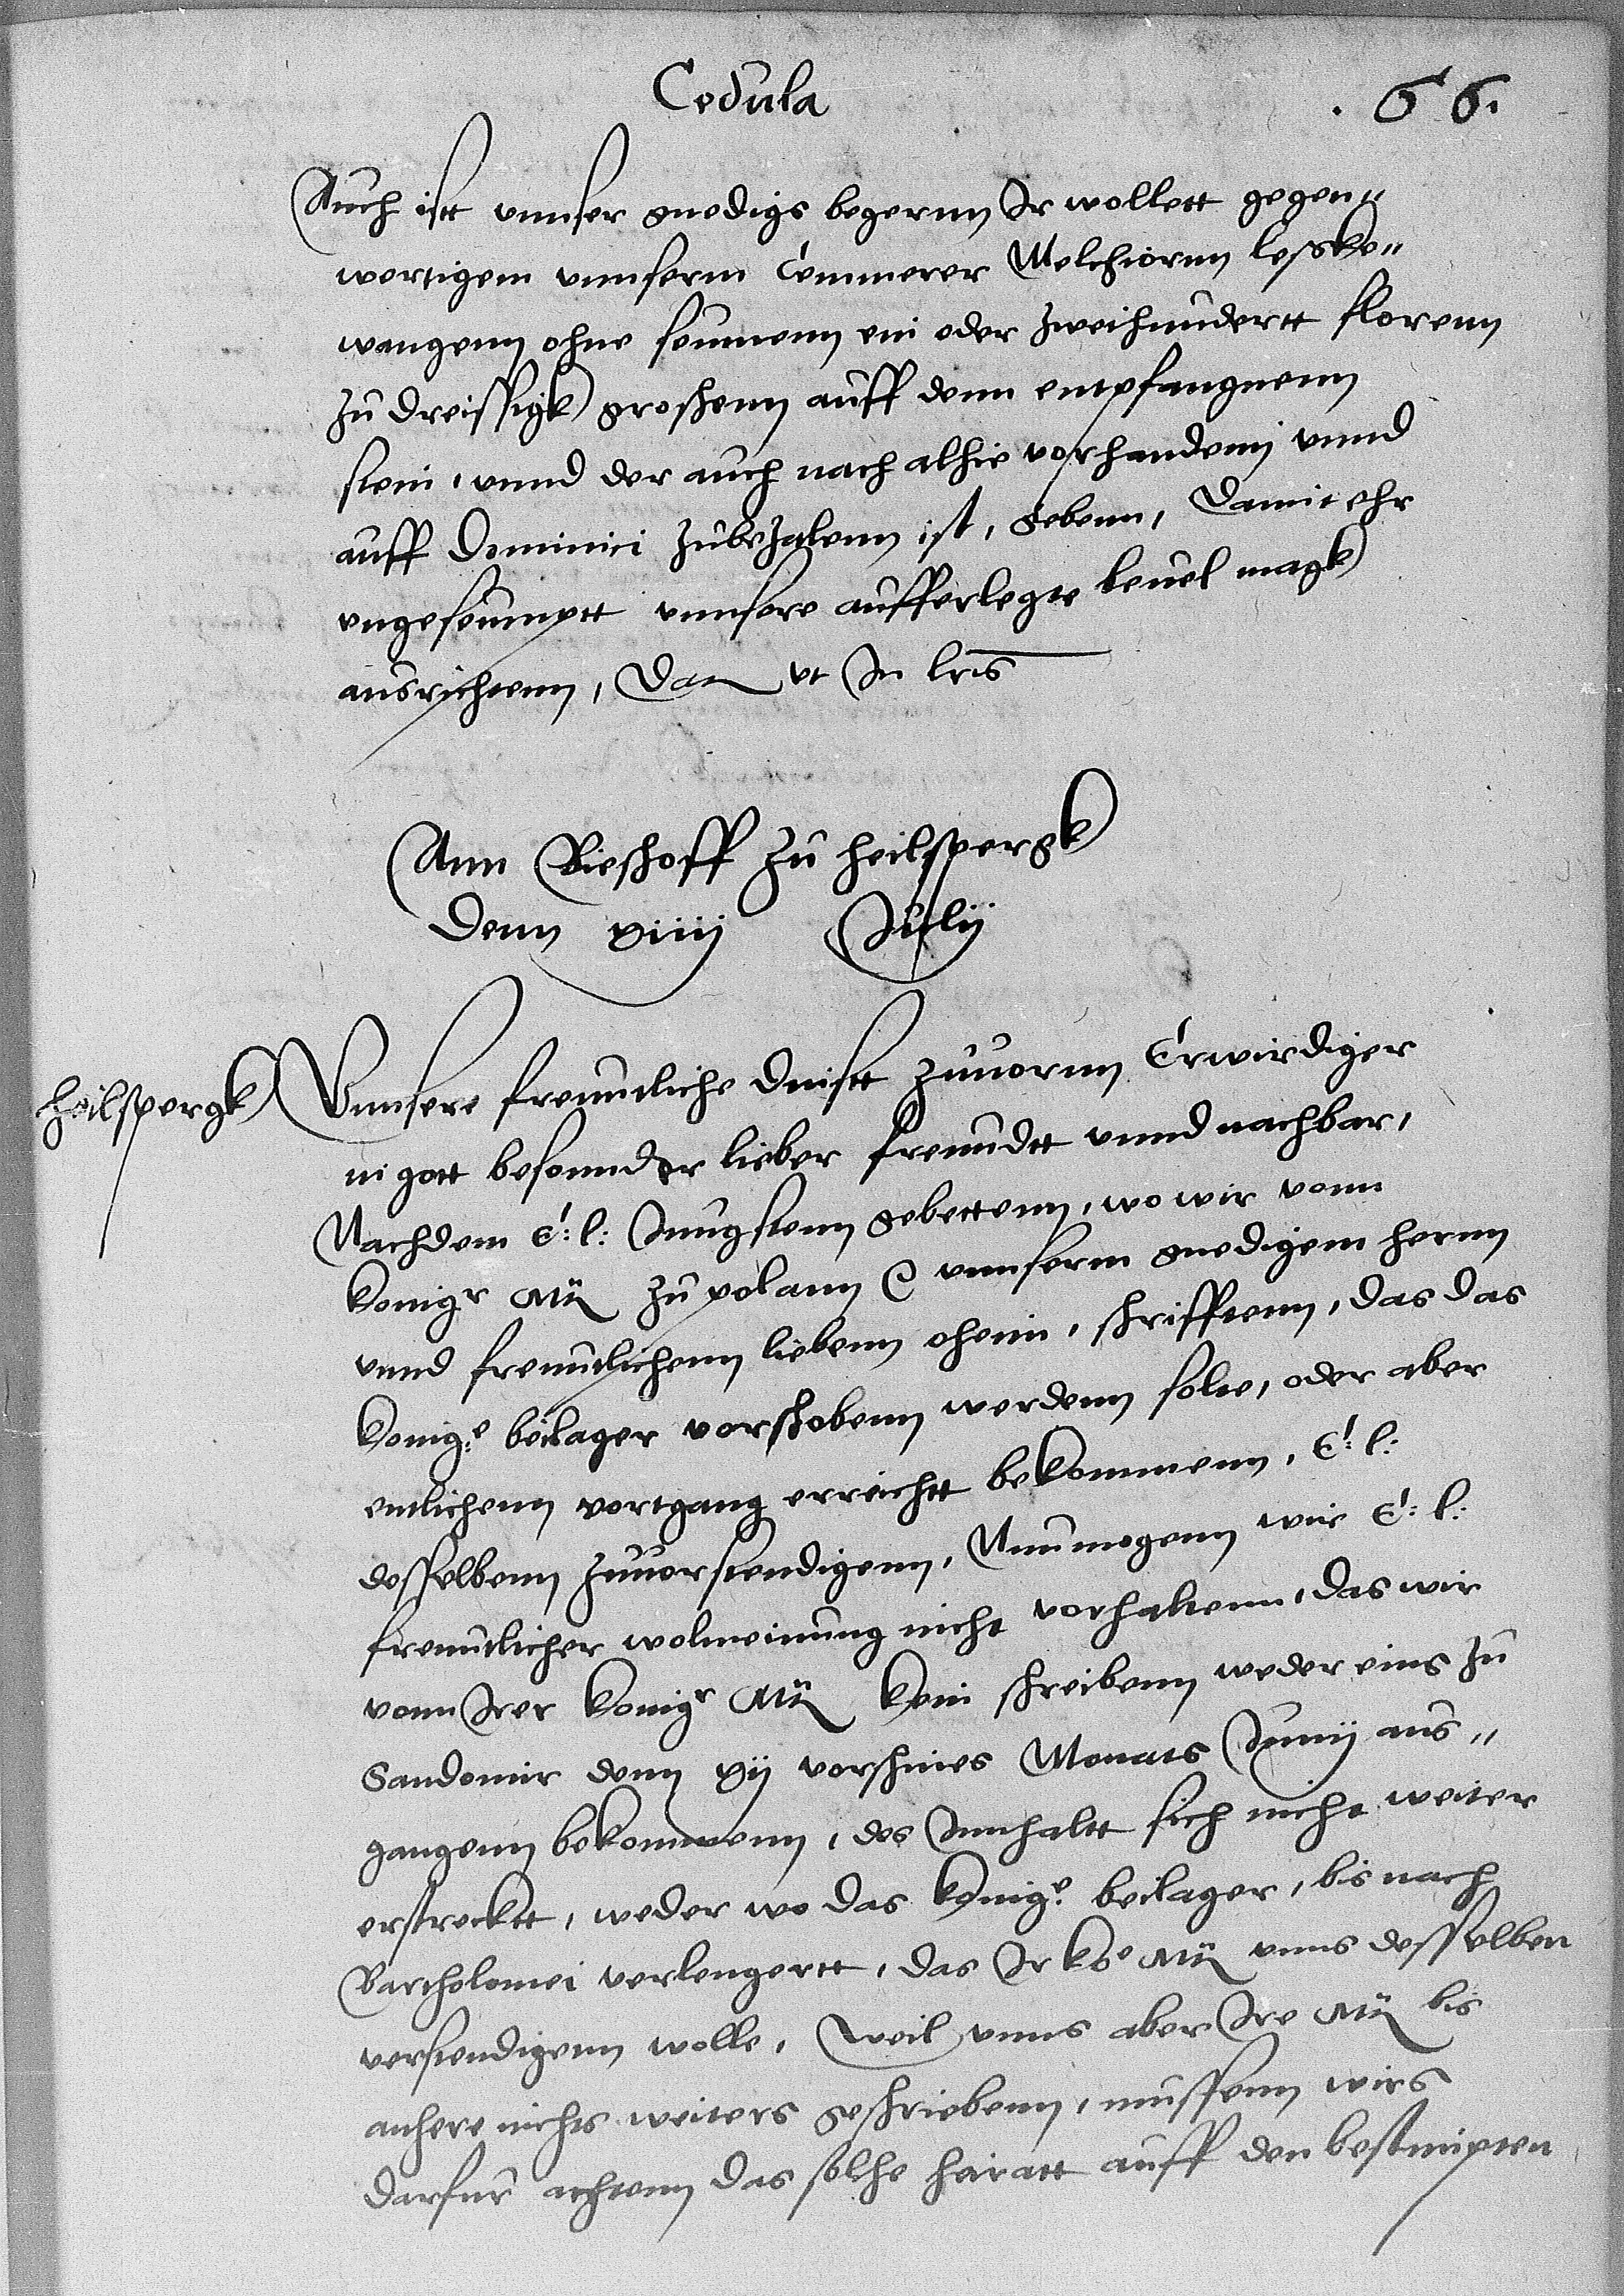 Cedula
.66.
Auch istt vnnser gnedigs begernn Ir wollett gegen„
wertigem vnnserm Cemmerer Melchiornn leske„
wangenn ohne seumenn ein oder zweihundertt florenn
zu dreissigk groschenn auff denn entpfangnenn
stein, vnnd der auch nach alhie vorhandenn vnnd
auff Dominici zubezalenn ist, gebenn, damit ehr
vngeseumptt vnnsere aufferlegte beuel magk
ausrichtenn, Dat vt In lris
Ann Bischoff zu heilspergk
denn xiiij Julij
heilspergk
Vnnsere freuntliche dinstt zuuornn Erwirdiger
in gott besonnder lieber freundtt vnnd nachbar,
Nachdem E: l: Jungstenn gebettenn, wo wir vonn
konigr Mt zu polann e vnnserm gnedigem hernn
vnnd freuntlichenn liebenn ohein, schrifftenn, das das
konig:e beilager vorschobenn werdenn solte, oder aber
entlichenn vortgang erreichtt bekommenn, E: l:
desselbenn zuuorstendigenn, Nun mogenn wir E: l:
freuntlicher wolmeinung nicht vorhaltenn, das wir
vonn Irer konigr Mt kein schreibenn weder eins zu
Sandomir denn xij vorschines Monats Junij aus„
gangenn bekommenn, des Innhaltt sich nicht weiter
erstrecktt, weder wo das konig:e beilager, bis nach
Bartholomei verlengertt, das Ir ko Mt vnns desselben
verstendigenn wolle, Weil vnns aber Ire Mt bis
anhere nichts weiters geschriebenn, mussenn wirs
darfur achtenn das solche heiratt auff den bestimpten